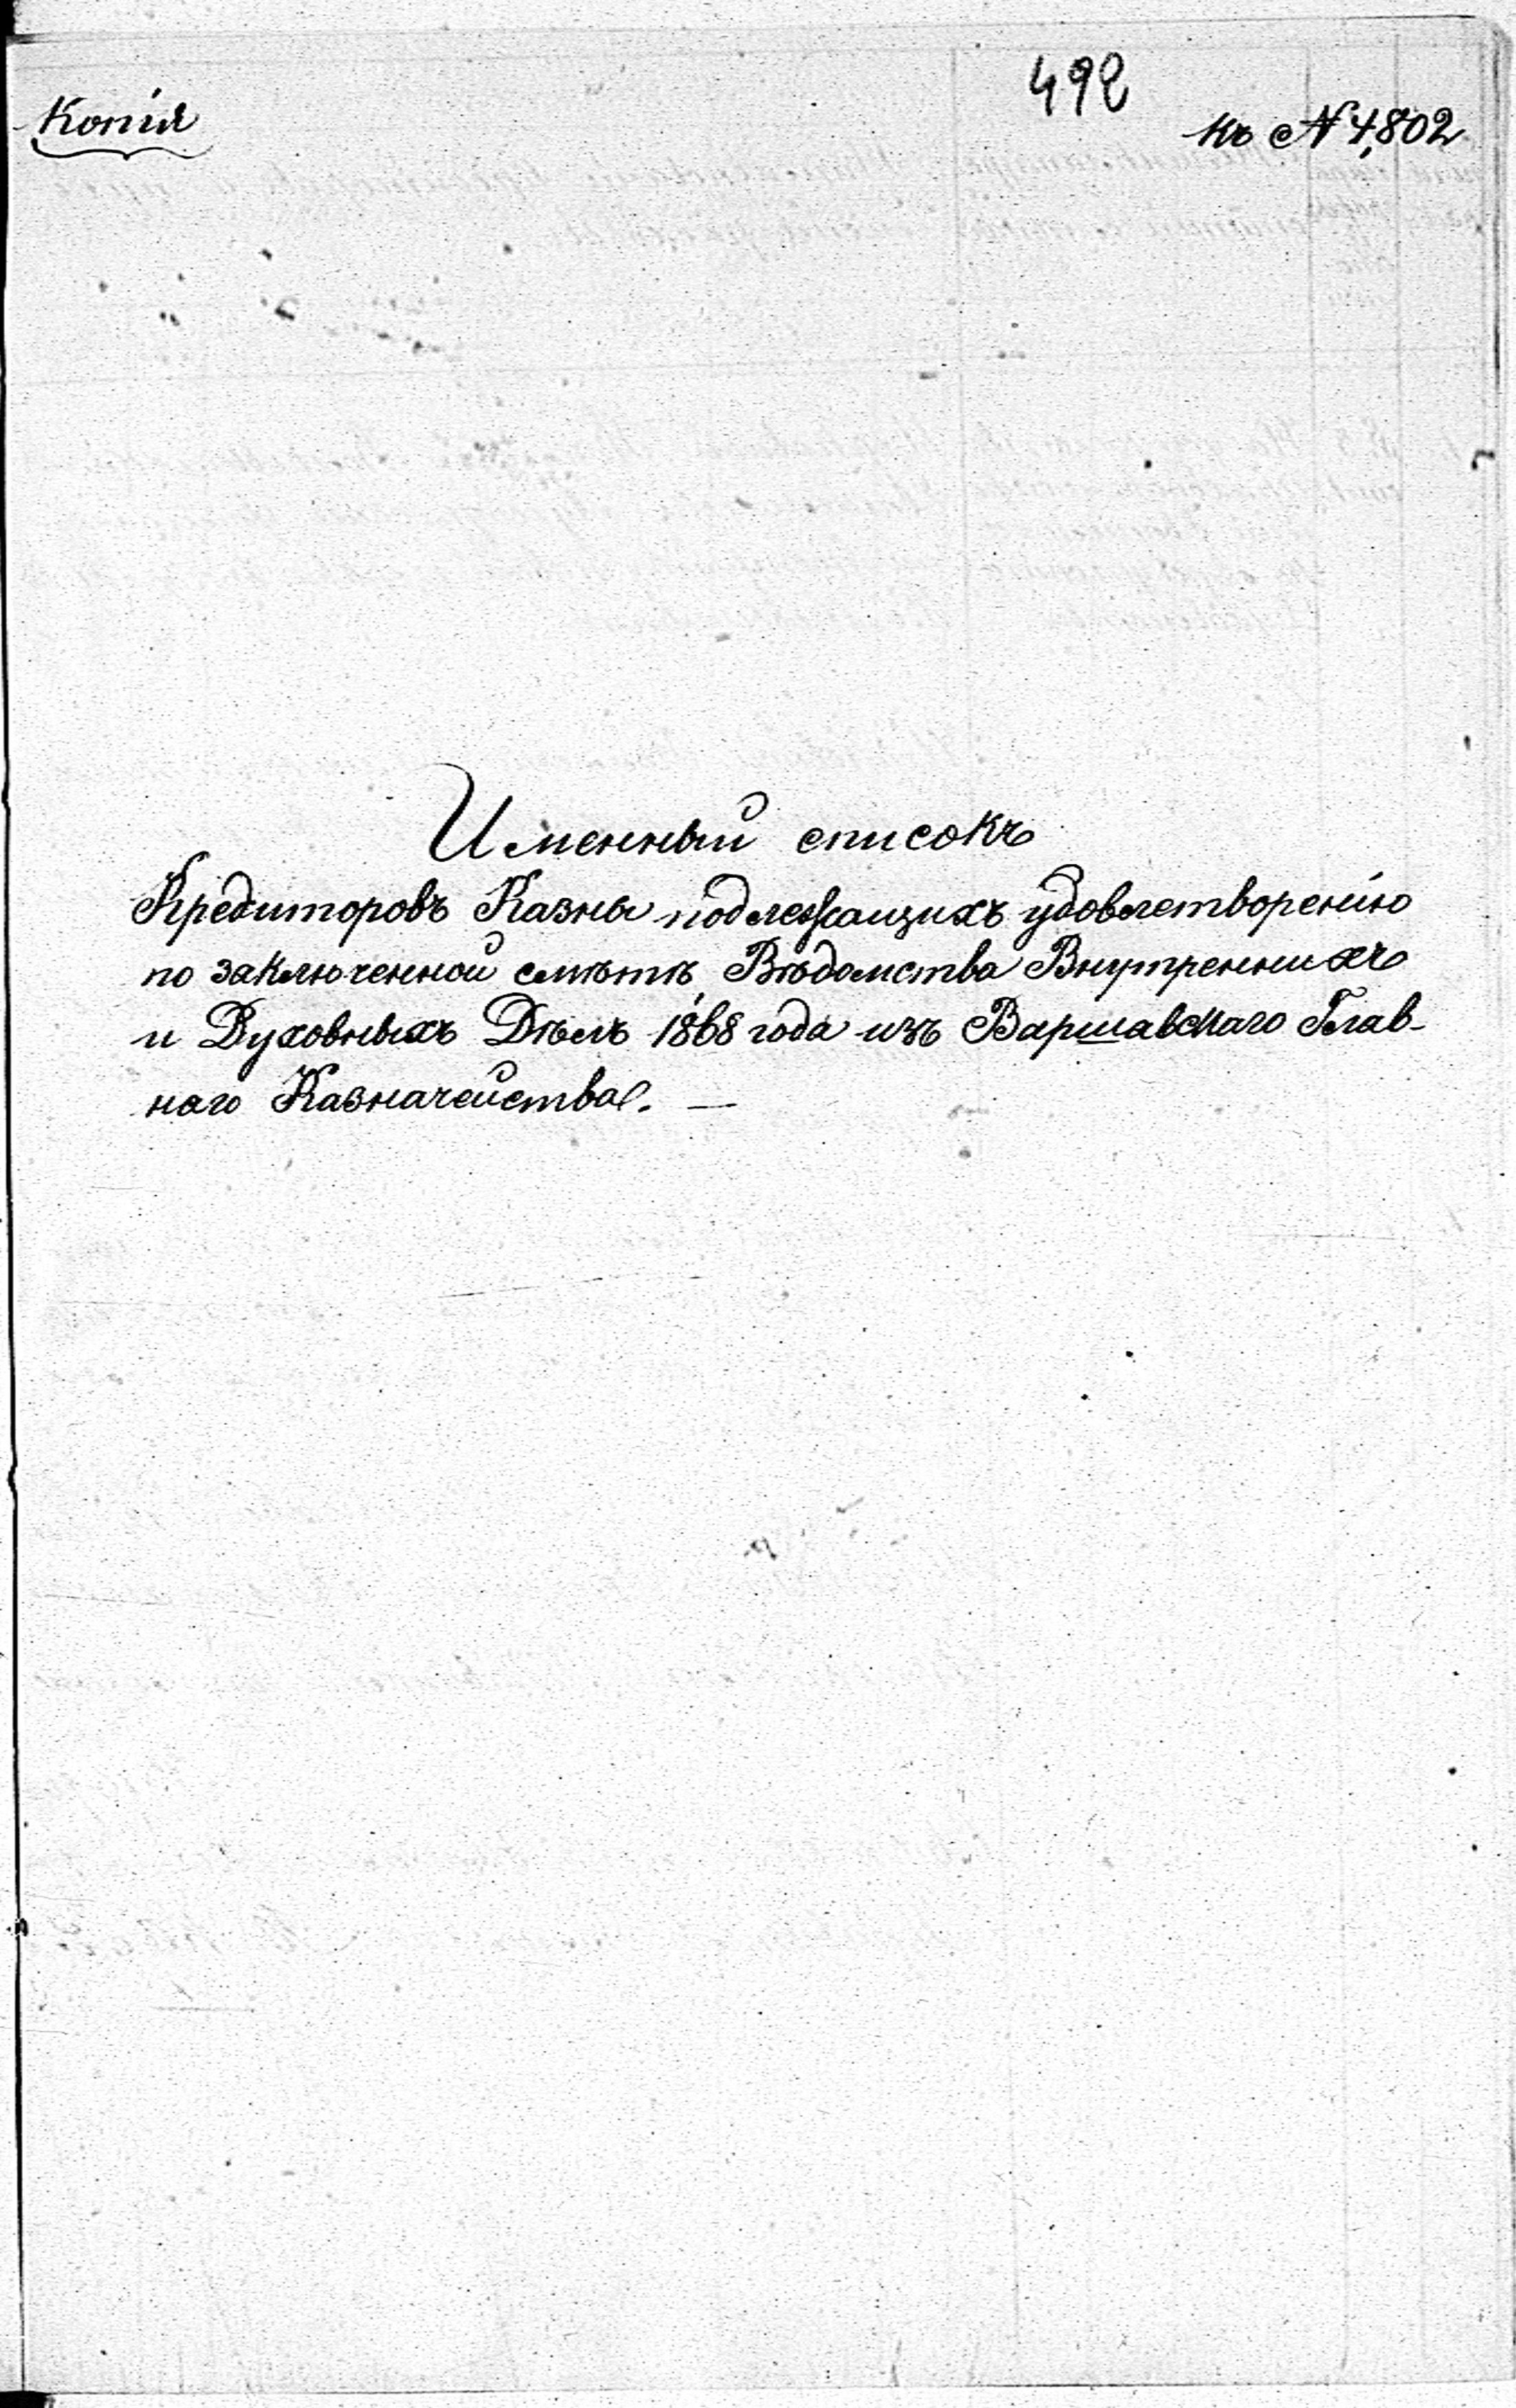 Копія
492
къ № 4,802
Именный списокъ
Кредиторовъ Казны подлежащихъ удовлетворенію
по заключенной смѣтѣ Вѣдомства Внутреннихъ
и Духовныхъ Дѣлъ 1868 года изъ Варшавскаго Глав-
наго Казначейства. —